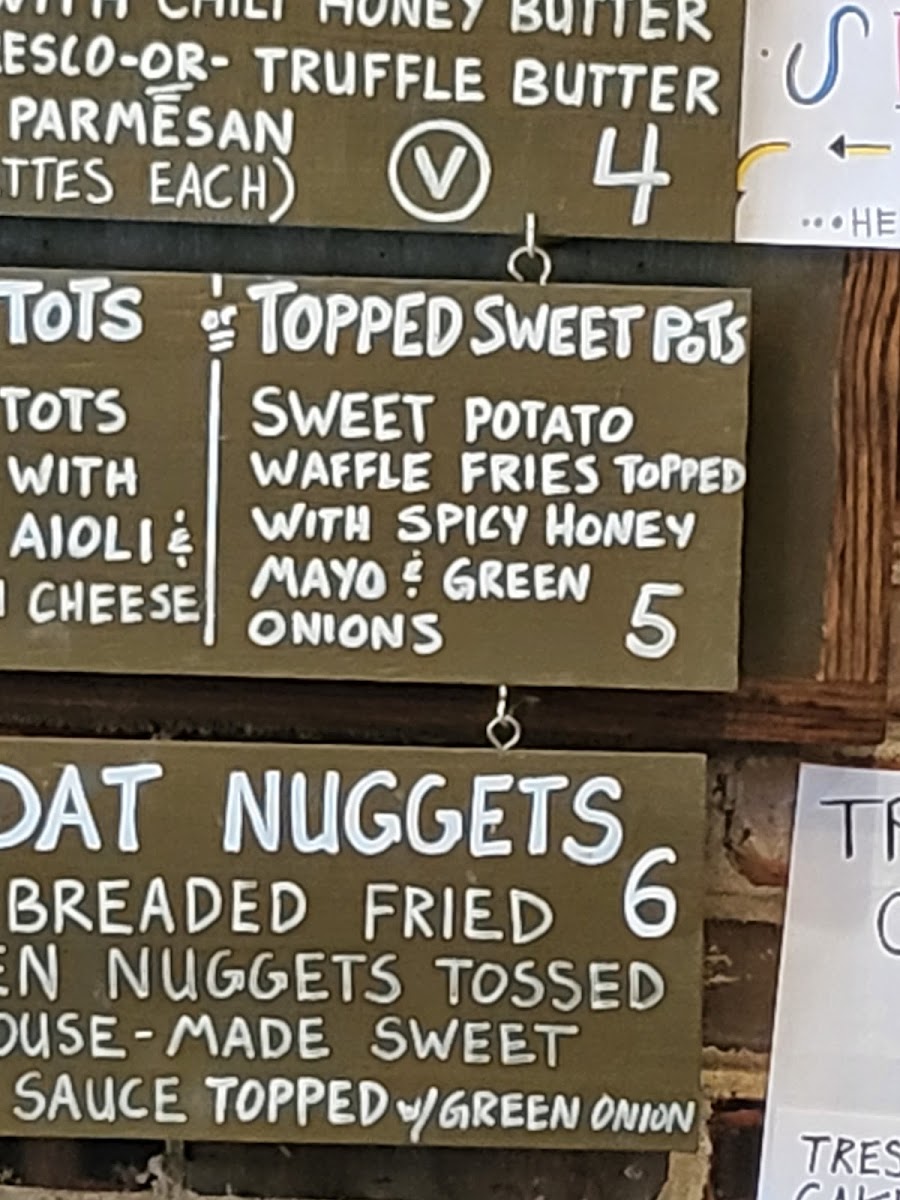 WITH CHILI HONEY BUTTER
ESCO-OR- TRUFFLE BUTTER
PARMESAN
TTES EACH)
V
4
...HE
TOTS
TOTS
WITH
AIOLI &
CHEESE
or
TOPPED SWEET POTS
SWEET POTATO
WAFFLE FRIES TOPPED
WITH SPICY HONEY
MAYO & GREEN
ONIONS
5
OAT NUGGETS
6
BREADED FRIED
EN NUGGETS TOSSED
OUSE-MADE SWEET
SAUCE TOPPED w/GREEN ONION
TR
TRES